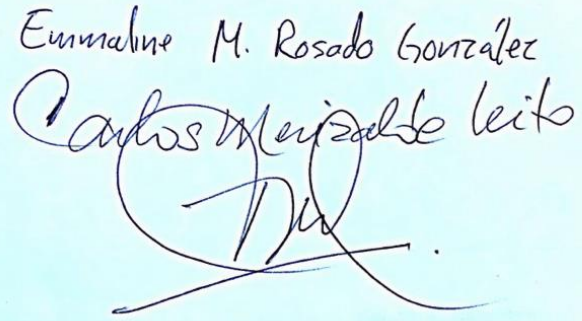 Emmaline M. Rosado González
Carlos Merizalde Leito